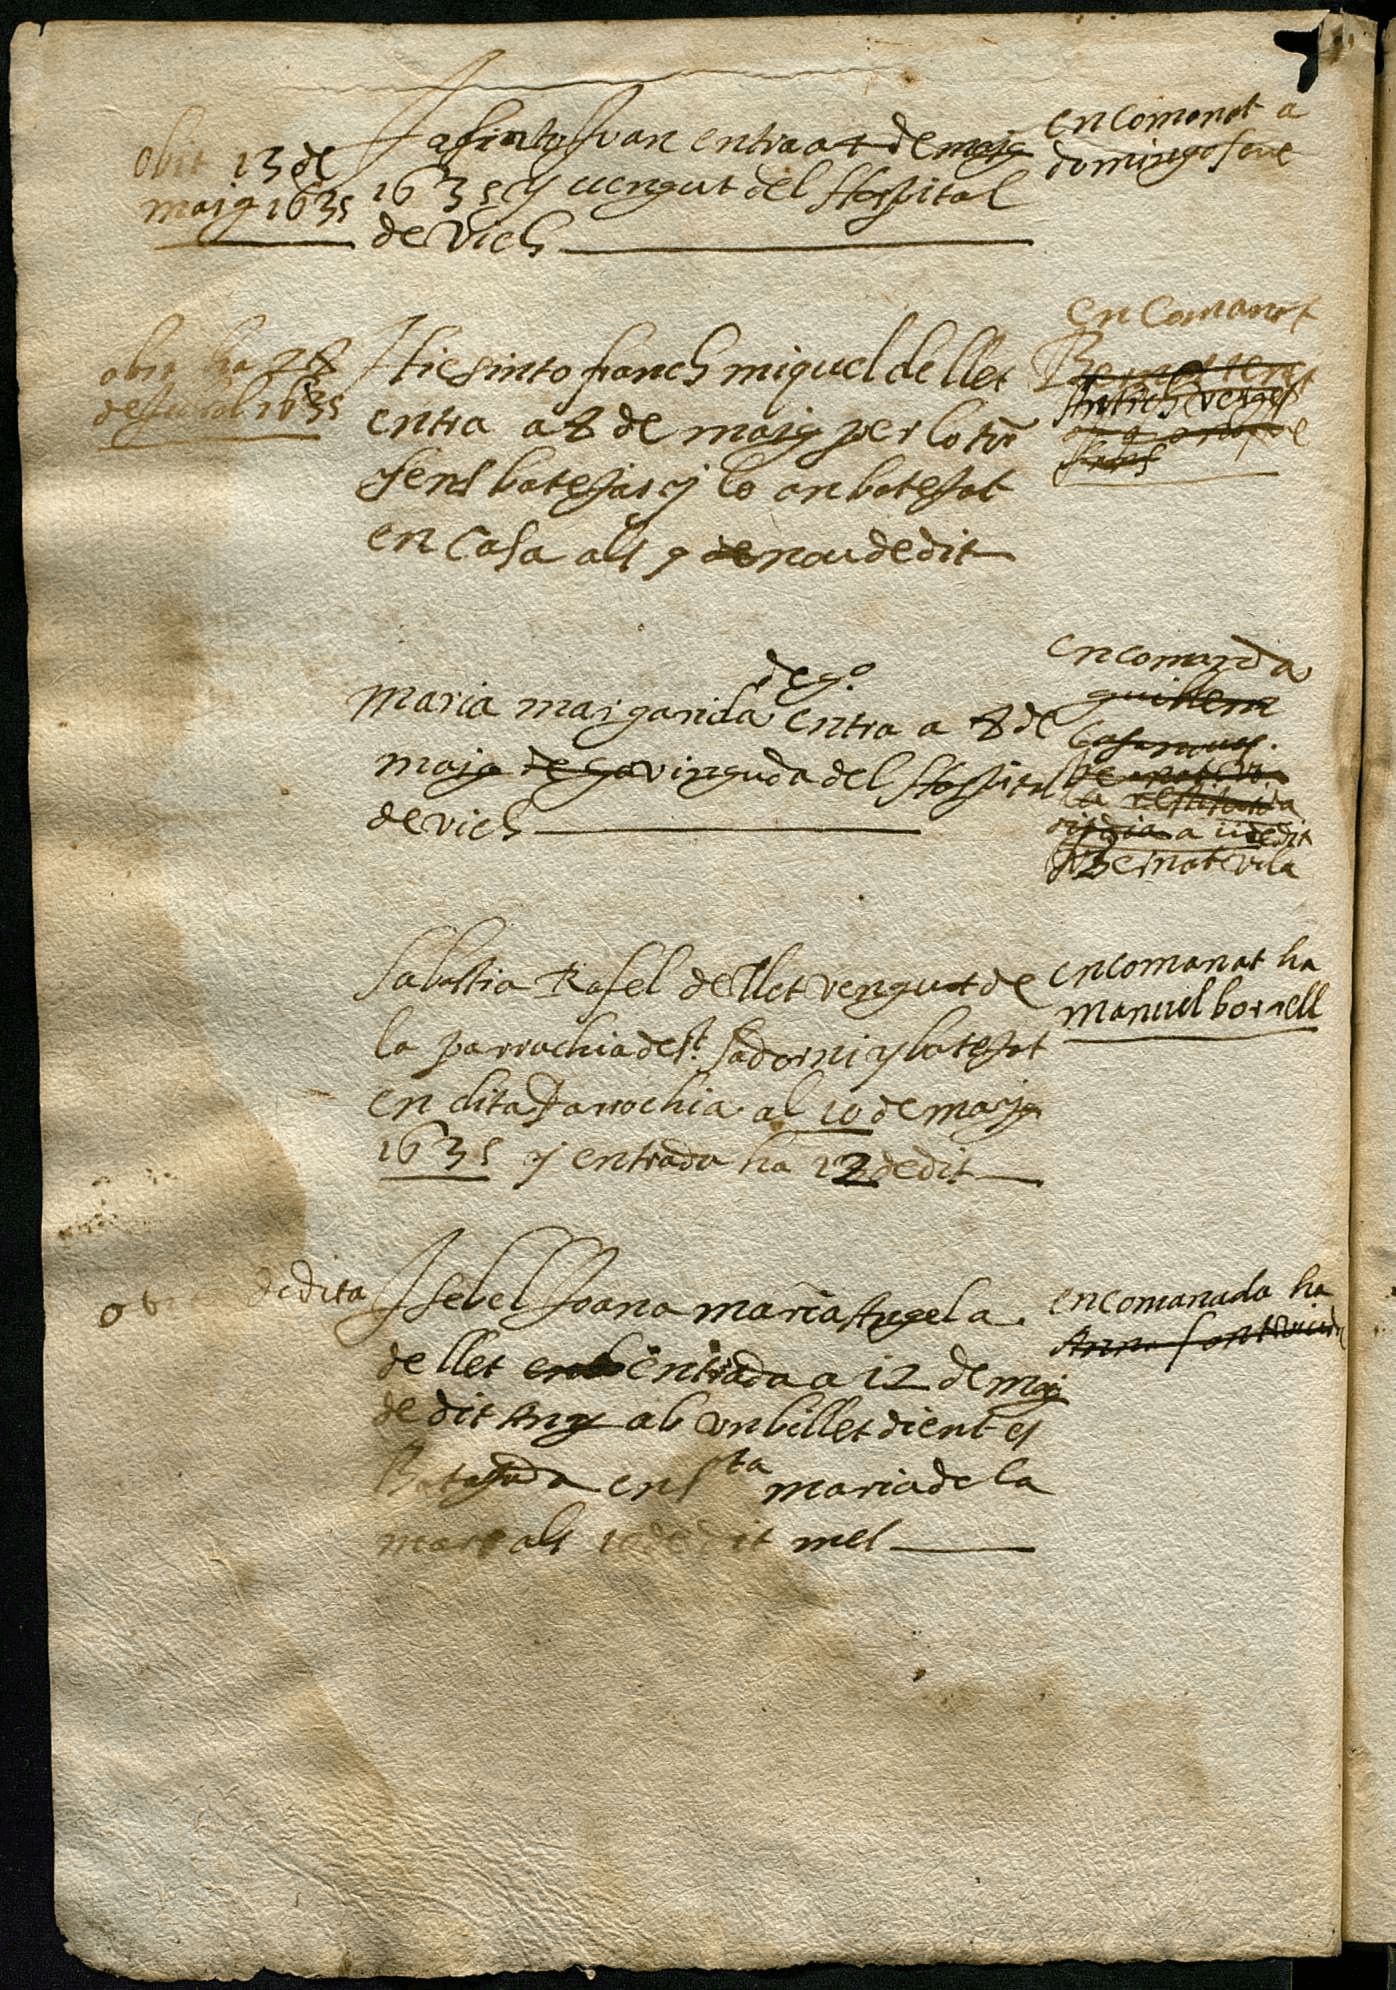 obit 13 de
maig 1635
Jasinto Juan entra a 4 de maig
1635 y vengut del Hospital
de Vich
encomanat a
domingo
obit ha 28
de Juliol 1635
Hiesinto franch miquel de llet
entra a 8 de maig per lo torn
sens batejar y lo an batejat
en Casa als 9 de nou de dit
en Comanat
Bernat
Antich verges
dego
Maria margarida entra a 8 de
maig de go vinguda del Hospital
de vich
encomanda
guillem
Casanovas
la restituida
a 11 de dit
Bernat vila
Sabastia Rafel de llet vengut de
la parrochia de St. Sadorni y batejat
en dita Parrochia al 10 de maig
1635 y entrada ha 12 de dit
encomanat ha
manuel borrell
obit de dita
Isebel Joana maria Angela
de llet entrada a 12 de maig
de dit Any ab un billet dient es
Batejada en Sta maria de la
mar als 10 de dit mes
encomanada ha
Anna font viuda